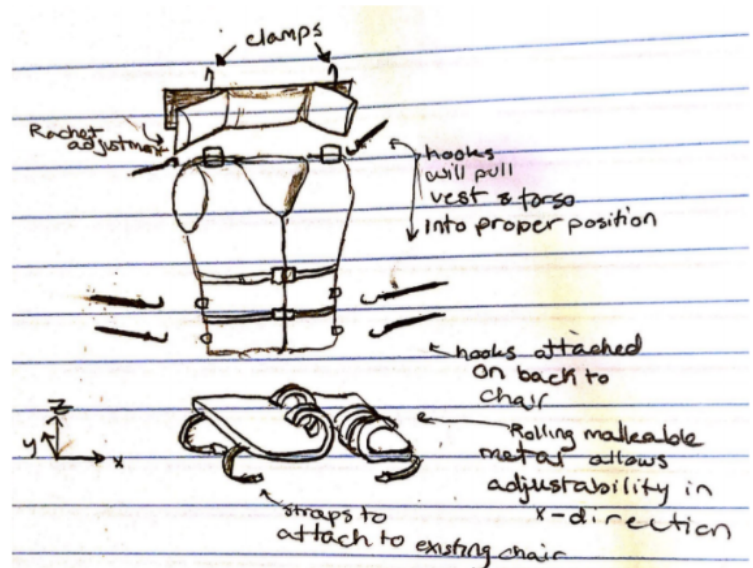 clamps
Rachet
adjustment
hooks
will pull
vest & torso
into proper position
hooks attached
on back to
chair
Z
y
x
Rolling malleable
metal allows
adjustability in
x-direction
straps to
attach to existing chair